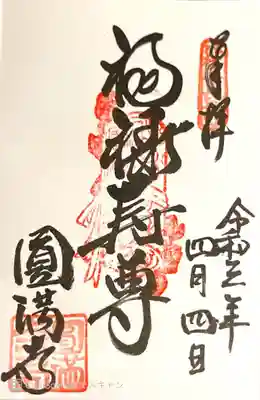 奉拝
令和三年
四月四日
福禄寿尊
圓満寺